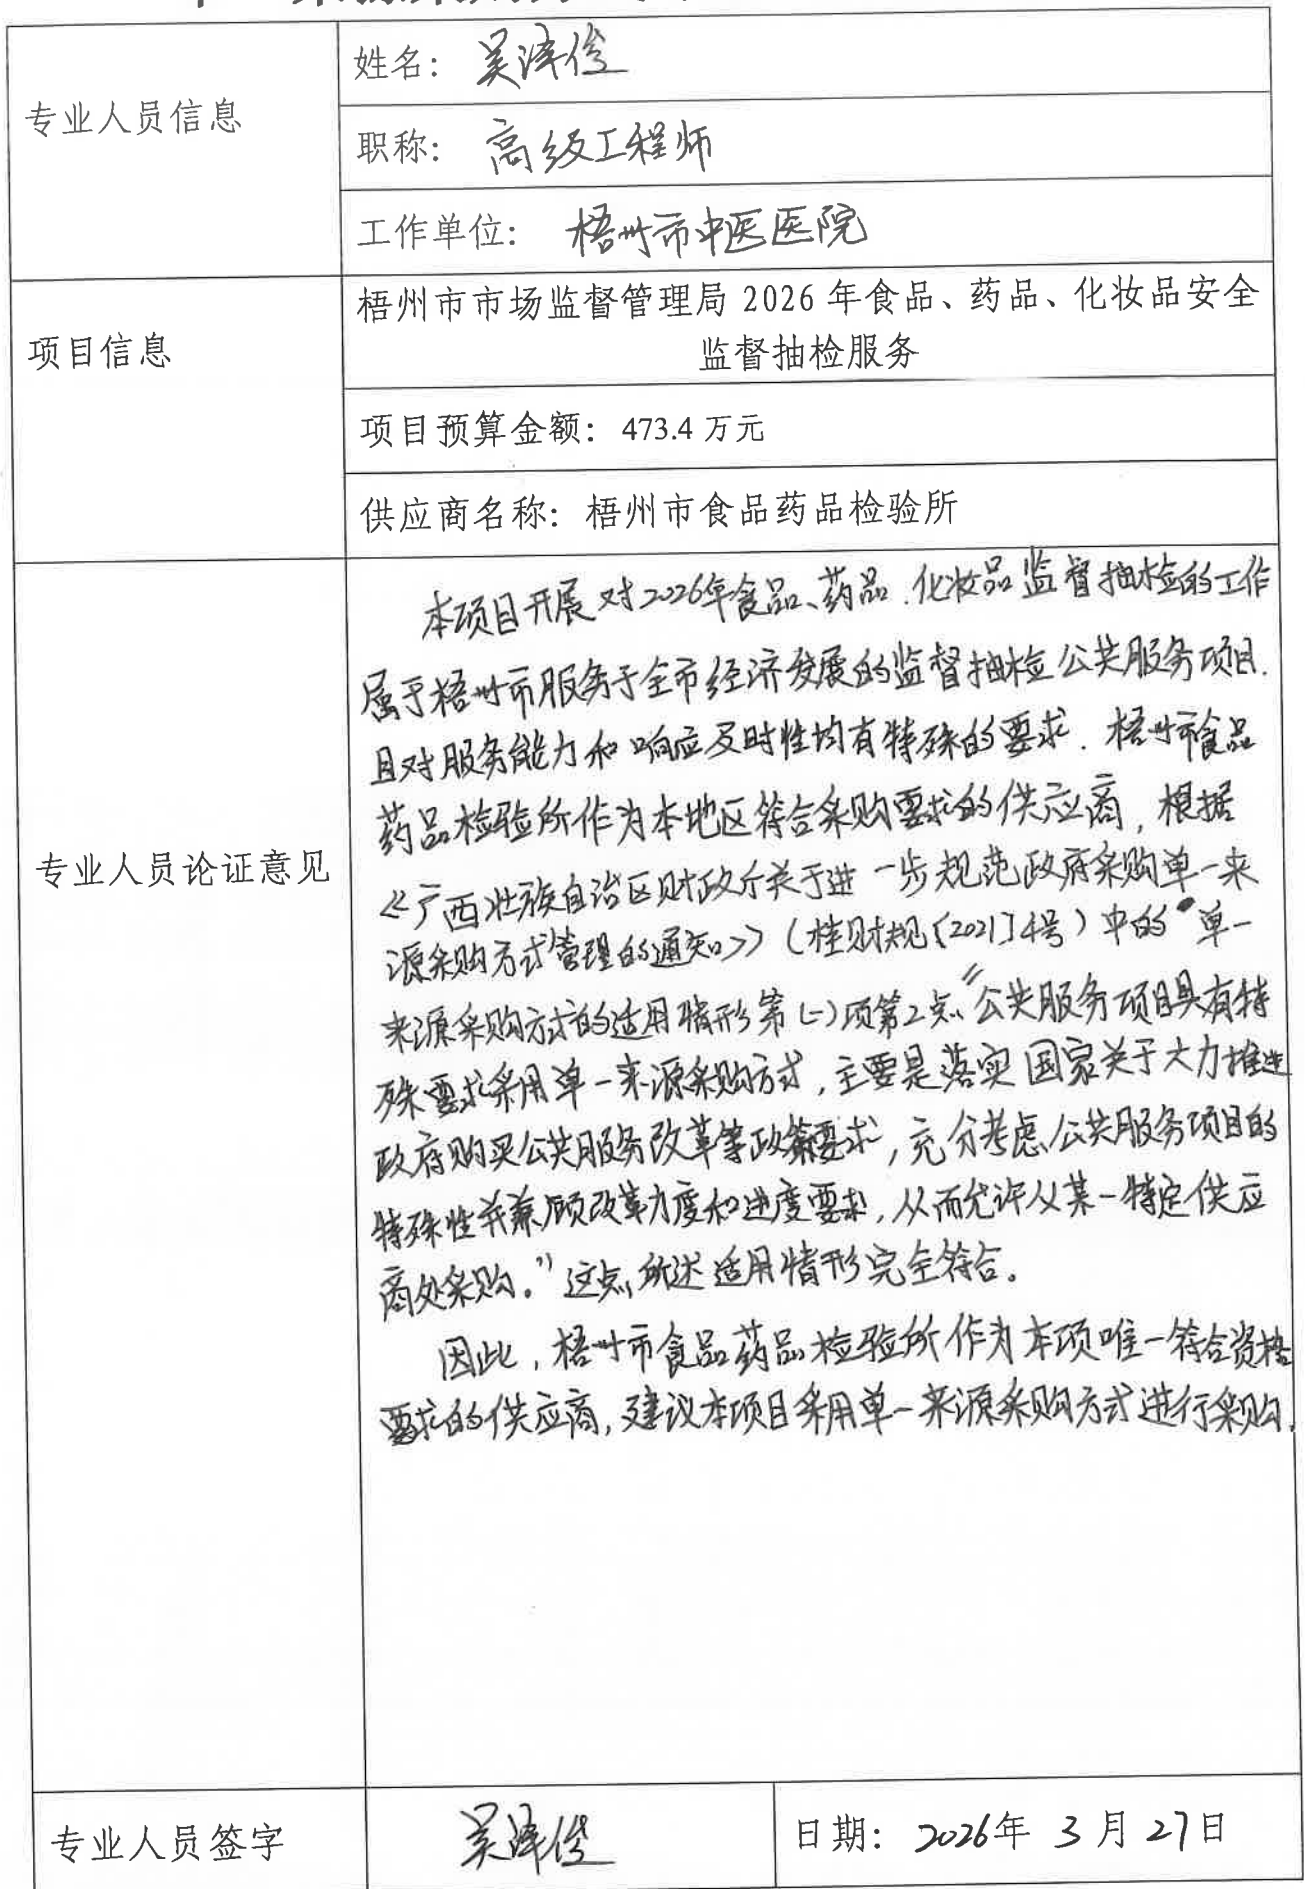 专业人员信息
姓名：吴泽俊
职称：高级工程师
工作单位：梧州市中医医院
项目信息
梧州市市场监督管理局 2026 年食品、药品、化妆品安全
监督抽检服务
项目预算金额：473.4 万元
供应商名称：梧州市食品药品检验所
专业人员论证意见
本项目开展对2026年食品、药品、化妆品监督抽检的工作
属于梧州市服务于全市经济发展的监督抽检公共服务项目.
且对服务能力和响应及时性均有特殊的要求. 梧州市食品
药品检验所作为本地区符合采购要求的供应商，根据
《广西壮族自治区财政厅关于进一步规范政府采购单一来
源采购方式管理的通知》（桂财规〔2021〕4号）中的 单一
来源采购方式的适用情形第(一)项第2点“公共服务项目具有特
殊要求采用单一来源采购方式，主要是落实国家关于大力推进
政府购买公共服务改革等政策要求，充分考虑公共服务项目的
特殊性并兼顾改革力度和进度要求，从而允许从某一特定供应
商处采购。”这点所述适用情形完全符合。
因此，梧州市食品药品检验所作为本项唯一符合资格
要求的供应商，建议本项目采用单一来源采购方式进行采购.
专业人员签字
吴泽俊
日期：2026年 3 月 27日